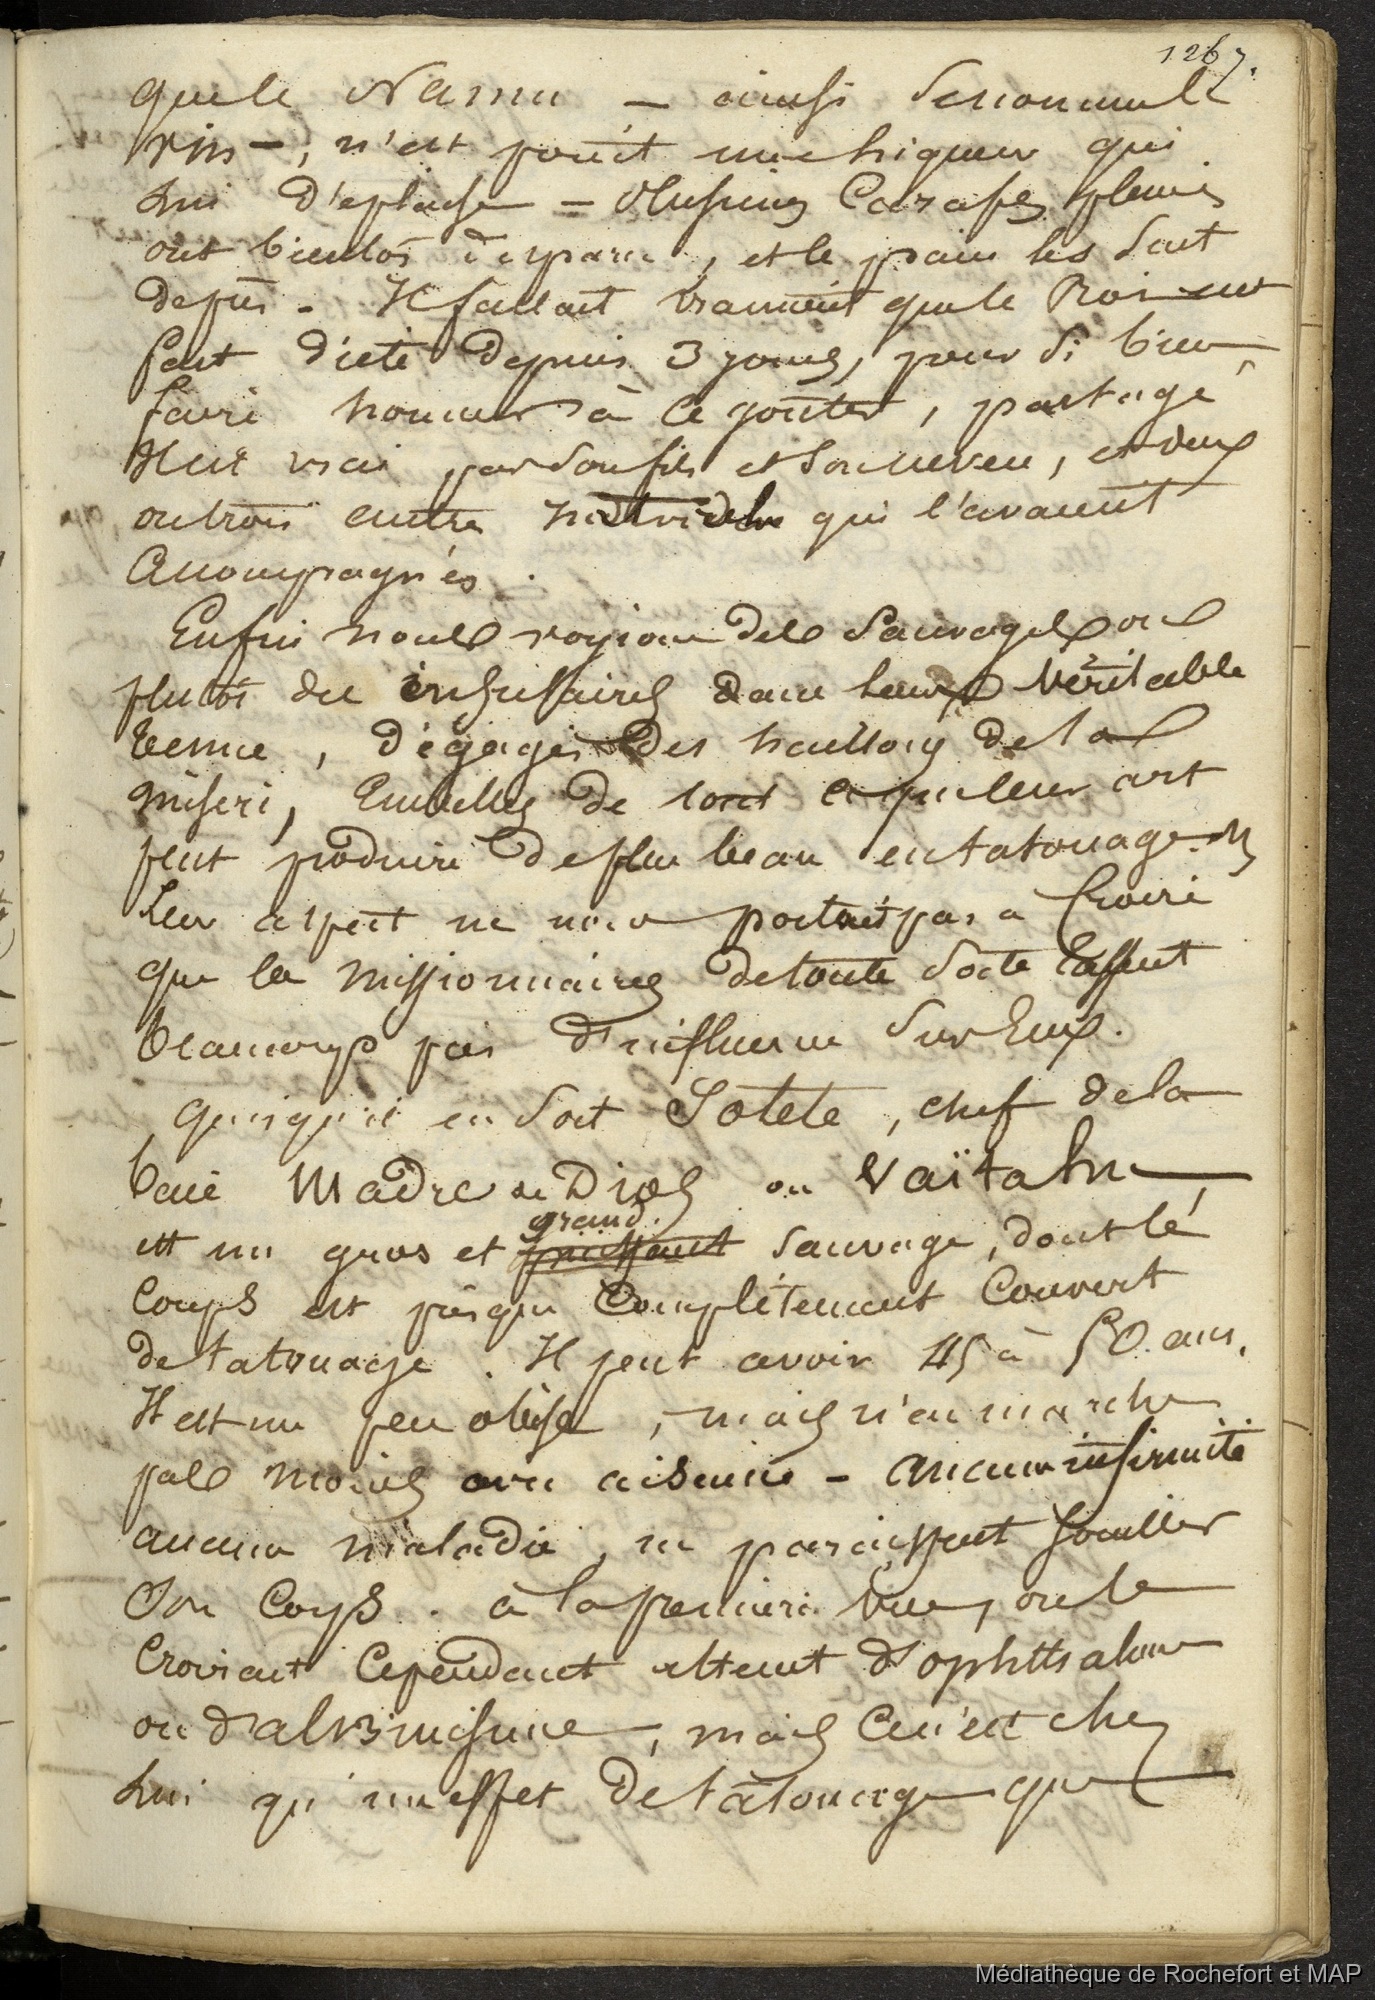 1267.
que le Namu — ainsi se nomme le
vin —, n'est point une liqueur qui
lui déplaise — Plusieurs Carafes pleines
ont bientôt disparu, et le pain les suit
de près. Il fallait vraiment que le Roi eut
fait diète depuis 3 jours, pour si bien
faire honneur à ce goûter, partagé
il est vrai par son fils et son neveu, et deux
ou trois autres individus qui l'avaient
accompagnés.
Enfin nous voyions des Sauvages ou
plutôt des insulaires dans leur véritable
tenue, dégagés des haillons de la
misère, Embellis de tout ce que leur art
peut produire de plus beau en tatouages
leur aspect ne nous portait pas a Croire
que les missionnaires de toute secte Eussent
beaucoup pris d'influence sur Eux.
Quoiqu'il en soit Iotété, chef de la
baie Madre de Dios ou Vaïtahu
est un gros et puissant grand sauvage, dont le
Corps est presque Complétement Couvert
de tatouage. Il peut avoir 45 à 50 ans.
Il est un peu obèse, mais n'en marche
pas moins avec aisance — aucune infirmité
aucune maladie, ne paraissent souiller
son Corps. à la première Vue, on le
Croirait Cependant atteint d'ophthalmie
ou d'albinisme, mais Ce n'est chez
lui qu'un effet de tatouage que
Médiathèque de Rochefort et MAP